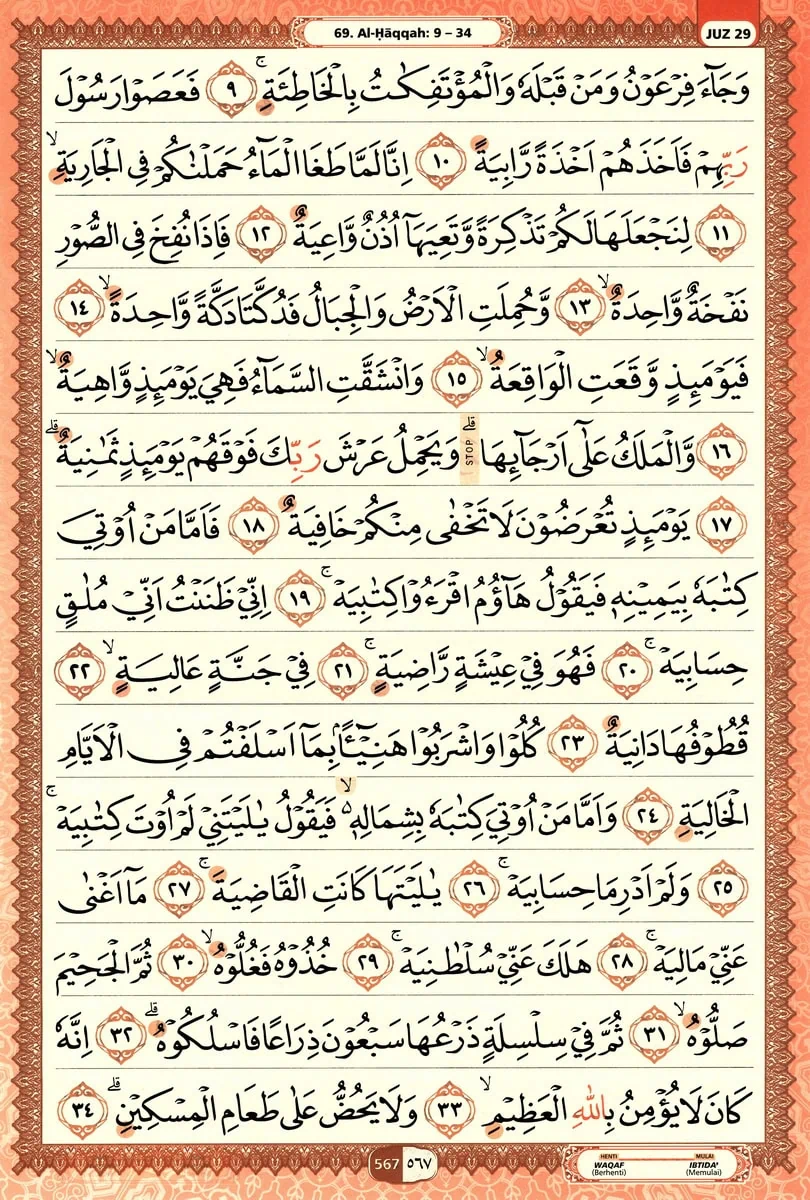 69. Al-Ḥāqqah: 9 – 34
JUZ 29
وَجَاۤءَ فِرْعَوْنُ وَمَنْ قَبْلَهٗ وَالْمُؤْتَفِكٰتُ بِالْخَاطِئَةِۚ ٩ فَعَصَوْا رَسُوْلَ
رَبِّهِمْ فَاَخَذَهُمْ اَخْذَةً رَّابِيَةً ١٠ اِنَّا لَمَّا طَغَا الْمَاۤءُ حَمَلْنٰكُمْ فِى الْجَارِيَةِۙ
١١ لِنَجْعَلَهَا لَكُمْ تَذْكِرَةً وَّتَعِيَهَآ اُذُنٌ وَّاعِيَةٌ ١٢ فَاِذَا نُفِخَ فِى الصُّوْرِ
نَفْخَةٌ وَّاحِدَةٌۙ ١٣ وَّحُمِلَتِ الْاَرْضُ وَالْجِبَالُ فَدُكَّتَا دَكَّةً وَّاحِدَةًۙ ١٤
فَيَوْمَىِٕذٍ وَّقَعَتِ الْوَاقِعَةُۙ ١٥ وَانْشَقَّتِ السَّمَاۤءُ فَهِيَ يَوْمَىِٕذٍ وَّاهِيَةٌۙ
١٦ وَّالْمَلَكُ عَلٰٓى اَرْجَاۤىِٕهَاۗ STOP وَيَحْمِلُ عَرْشَ رَبِّكَ فَوْقَهُمْ يَوْمَىِٕذٍ ثَمٰنِيَةٌۗ
١٧ يَوْمَىِٕذٍ تُعْرَضُوْنَ لَا تَخْفٰى مِنْكُمْ خَافِيَةٌ ١٨ فَاَمَّا مَنْ اُوْتِيَ
كِتٰبَهٗ بِيَمِيْنِهٖ فَيَقُوْلُ هَاۤؤُمُ اقْرَءُوْا كِتٰبِيَهْۚ ١٩ اِنِّيْ ظَنَنْتُ اَنِّيْ مُلٰقٍ
حِسَابِيَهْۚ ٢٠ فَهُوَ فِيْ عِيْشَةٍ رَّاضِيَةٍۚ ٢١ فِيْ جَنَّةٍ عَالِيَةٍۙ ٢٢
قُطُوْفُهَا دَانِيَةٌ ٢٣ كُلُوْا وَاشْرَبُوْا هَنِيْۤـًٔا ۢبِمَآ اَسْلَفْتُمْ فِى الْاَيَّامِ
الْخَالِيَةِ ٢٤ وَاَمَّا مَنْ اُوْتِيَ كِتٰبَهٗ بِشِمَالِهٖ ەۙ فَيَقُوْلُ يٰلَيْتَنِيْ لَمْ اُوْتَ كِتٰبِيَهْۚ
٢٥ وَلَمْ اَدْرِ مَا حِسَابِيَهْۚ ٢٦ يٰلَيْتَهَا كَانَتِ الْقَاضِيَةَۚ ٢٧ مَآ اَغْنٰى
عَنِّيْ مَالِيَهْۚ ٢٨ هَلَكَ عَنِّيْ سُلْطٰنِيَهْۚ ٢٩ خُذُوْهُ فَغُلُّوْهُۙ ٣٠ ثُمَّ الْجَحِيْمَ
صَلُّوْهُۙ ٣١ ثُمَّ فِيْ سِلْسِلَةٍ ذَرْعُهَا سَبْعُوْنَ ذِرَاعًا فَاسْلُكُوْهُۗ ٣٢ اِنَّهٗ
كَانَ لَا يُؤْمِنُ بِاللّٰهِ الْعَظِيْمِۙ ٣٣ وَلَا يَحُضُّ عَلٰى طَعَامِ الْمِسْكِيْنِۗ ٣٤
567 ٥٦٧
HENTI MULAI
WAQAF IBTIDA'
(Berhenti) (Memulai)